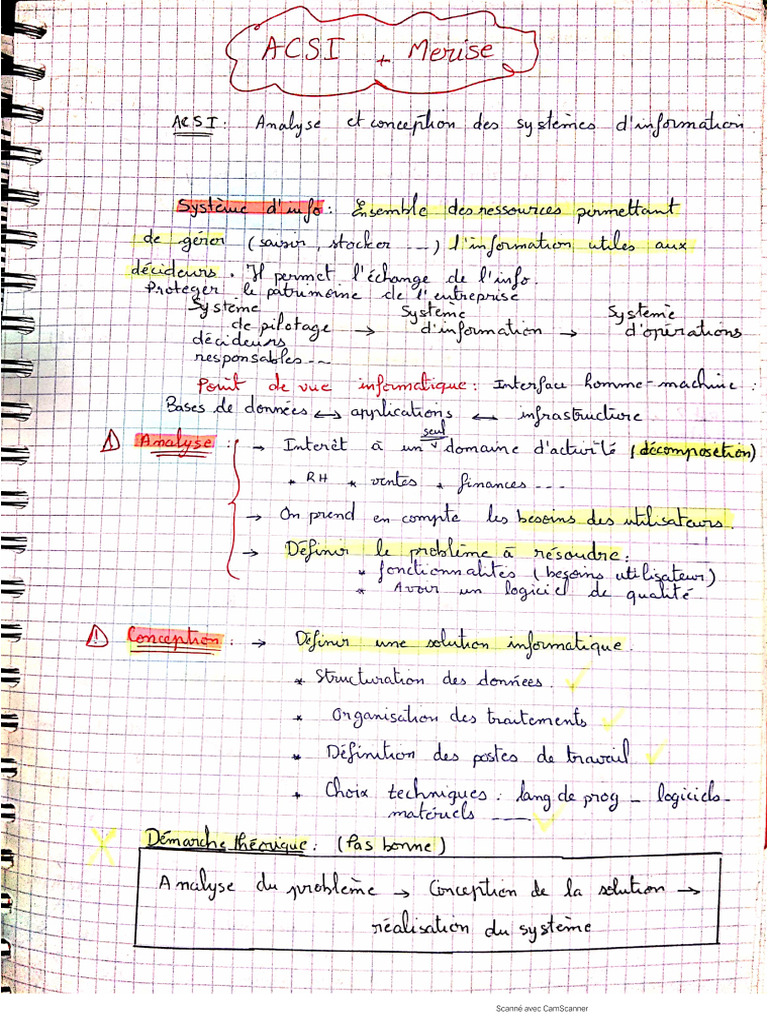 ACSI + Merise
ACSI : Analyse et conception des systèmes d'information
Système d'info : Ensemble des ressources permettant
de gérer (saisir, stocker ---) l'information utiles aux
décideurs. Il permet l'échange de l'info.
Protéger le patrimoine de l'entreprise
Système de pilotage → Système d'information → Système d'opérations
décideurs
responsables ---
Point de vue informatique : Interface homme-machine :
Bases de données ↔ applications ↔ infrastructure
⚠ Analyse : → Interêt à un seul domaine d'activité (décomposition)
* RH * ventes * finances ---
→ On prend en compte les besoins des utilisateurs.
→ Définir le problème à résoudre :
* fonctionnalités (besoins utilisateur)
* Avoir un logiciel de qualité
⚠ Conception : → Définir une solution informatique.
* Structuration des données. ✓
* Organisation des traitements ✓
* Définition des postes de travail ✓
* Choix techniques : lang de prog - logiciels-
matériels --- ✓
X Démarche théorique : (Pas bonne)
Analyse du problème → Conception de la solution →
réalisation du système
Scanné avec CamScanner